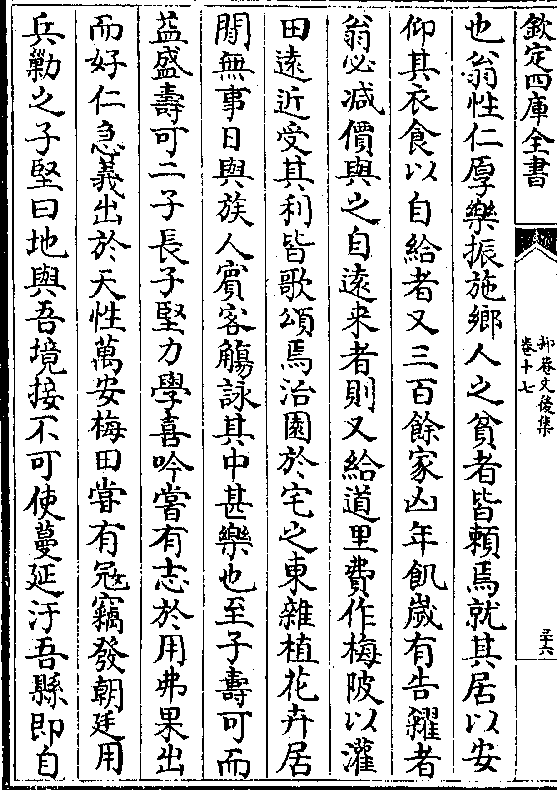 欽定四庫全書
抑菴文後集
卷十七
三十六
也翁性仁厚樂振施鄉人之貧者皆頼焉就其居以安
仰其衣食以自給者又三百餘家凶年飢嵗有告糴者
翁必减價與之自遠来者則又給道里費作梅陂以灌
田遠近受其利皆歌頌焉治園於宅之東雜植花卉居
閒無事日與族人賓客觴詠其中甚樂也至子壽可而
益盛壽可二子長子堅力學喜吟嘗有志於用弗果出
而好仁急義出於天性萬安梅田嘗有冦竊發朝廷用
兵勦之子堅曰地與吾境接不可使蔓延汙吾縣即自